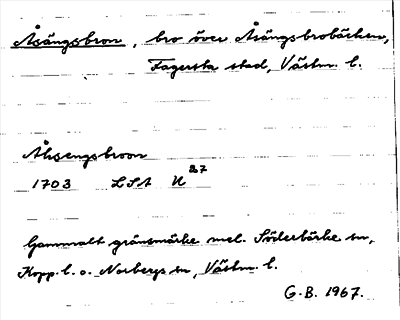 Åsängsbron, bro över Åsängsbrobäcken,
Fagersta stad, Västm. l.
Åhsengsbroon
1703 LSA U 27
Gammalt gränsmärke mel. Söderbärke sn,
Kopp. l. o. Norbergs sn, Västm. l.
G.B. 1967.